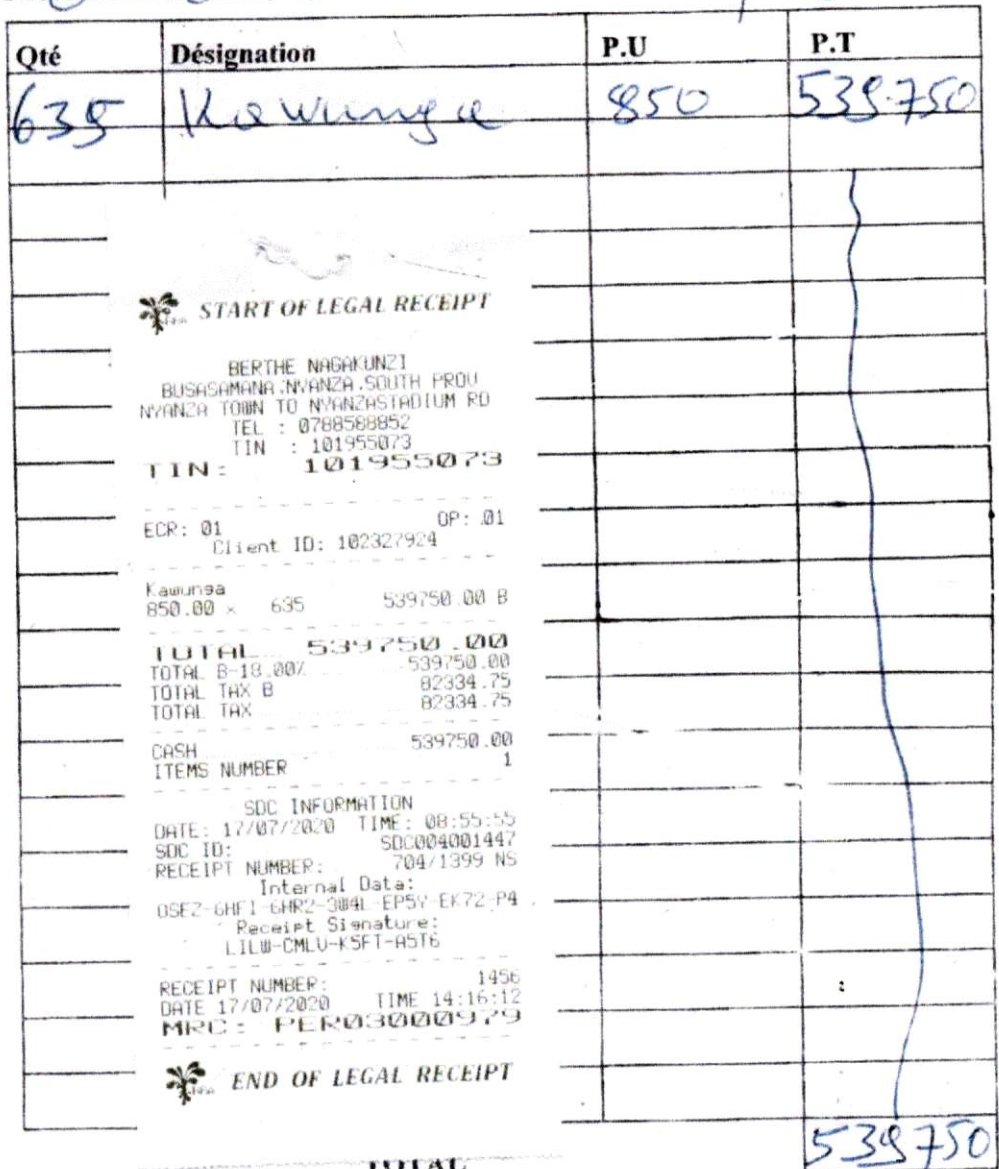 Qté Désignation P.U P.T
635 Kawunga 850 539.750
START OF LEGAL RECEIPT
BERTHE NAGAKUNZI
BUSASAMANA,NYANZA,SOUTH PROV
NYANZA TOWN TO NYANZASTADIUM RD
TEL : 0788588852
TIN : 101955073
TIN: 101955073
ECR: 01 OP: 01
Client ID: 102327924
Kawunga
850.00 × 635 539750.00 B
TOTAL 539750.00
TOTAL B-18.00% 539750.00
TOTAL TAX B 82334.75
TOTAL TAX 82334.75
CASH 539750.00
ITEMS NUMBER 1
SDC INFORMATION
DATE: 17/07/2020 TIME: 08:55:55
SDC ID: SDC004001447
RECEIPT NUMBER: 704/1399 NS
Internal Data:
OSEZ-6HFI-6HR2-3W4L-EP5Y-EK72-P4
Receipt Signature:
LILW-CMLV-K5FT-A5T6
RECEIPT NUMBER: 1456
DATE 17/07/2020 TIME 14:16:12
MRC: PER03000979
END OF LEGAL RECEIPT
539750
TOTAL